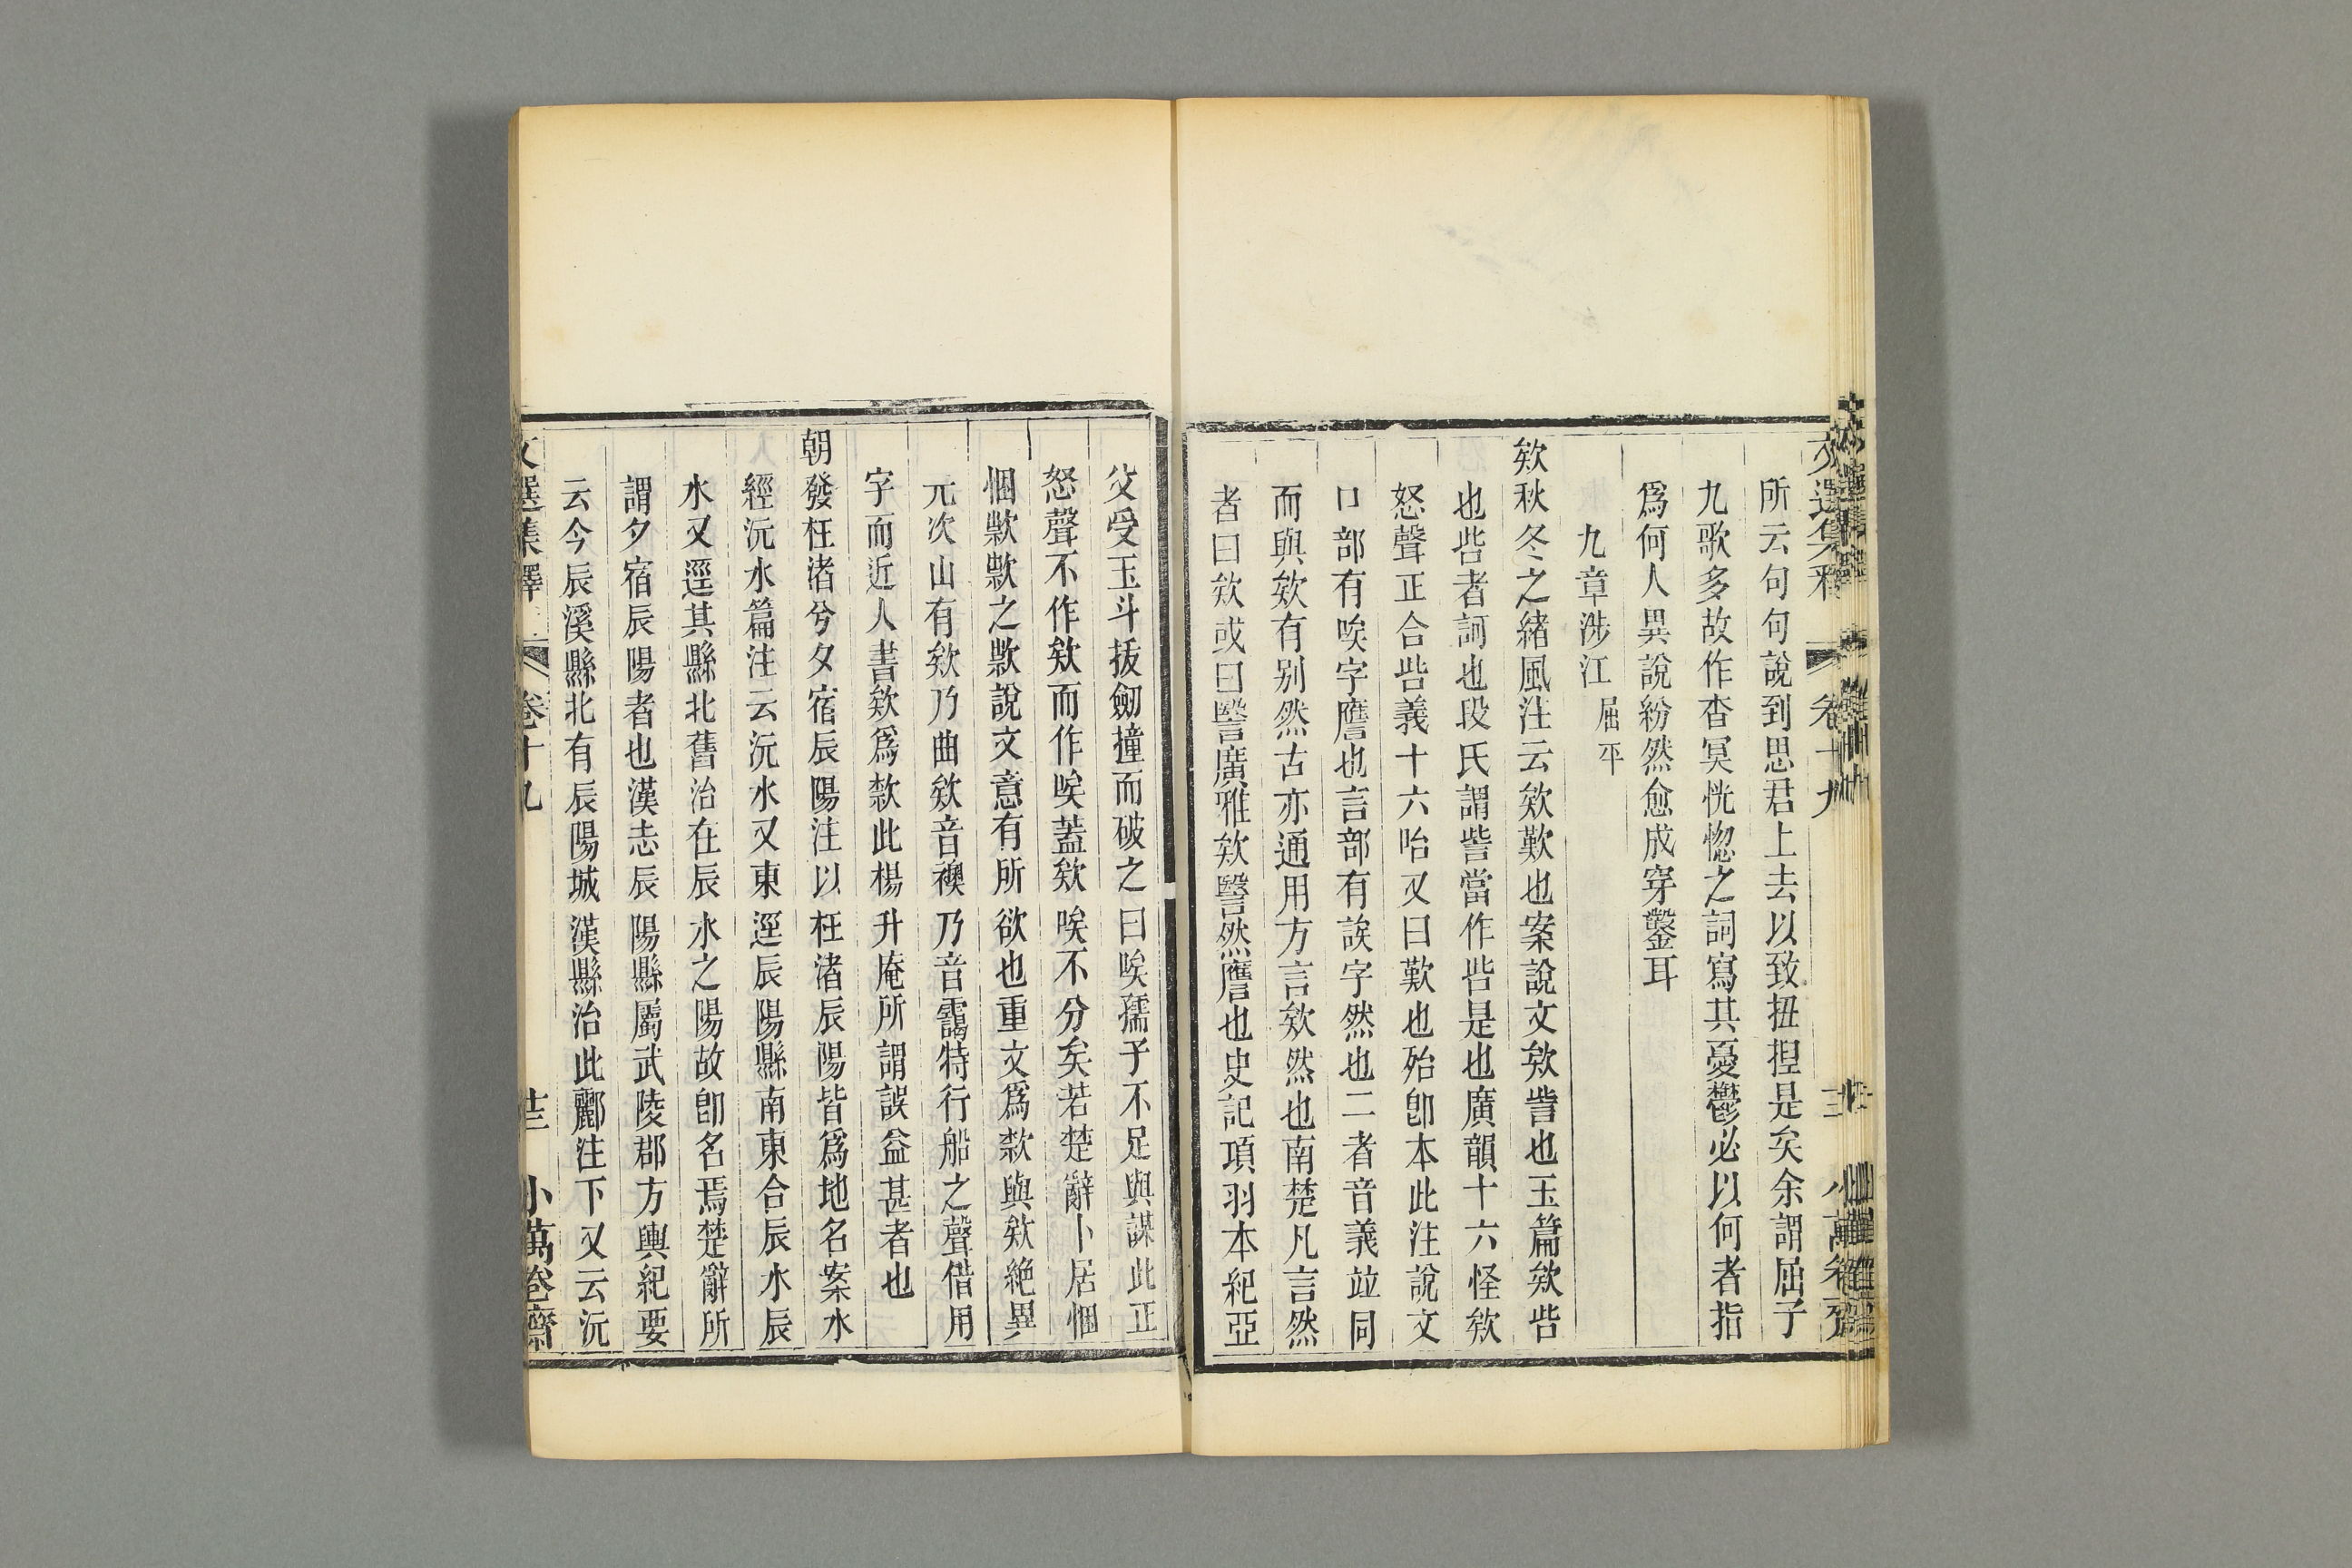 所云句句說到思君上去以致扭揑是矣余謂屈子
九歌多故作杳冥恍惚之詞寫其憂鬱必以何者指
爲何人異說紛然愈成穿鑿耳
九章涉江 屈平
欸秋冬之緒風注云欸歎也案說文欸訾也玉篇欸呰
也呰者訶也段氏謂訾當作呰是也廣韻十六怪欸
怒聲正合呰義十六咍又曰歎也殆卽本此注說文
口部有唉字譍也言部有誒字然也二者音義竝同
而與欸有别然古亦通用方言欸然也南楚凡言然
者曰欸或曰毉廣雅欸毉然譍也史記項羽本紀亞
父受玉斗拔劒撞而破之曰唉孺子不足與謀此正
怒聲不作欸而作唉蓋欸唉不分矣若楚辭卜居悃
悃款款之款說文意有所欲也重文爲欵與欸絶異
元次山有欸乃曲欸音襖乃音靄特行船之聲借用
字而近人書欸爲欵此楊升庵所謂誤益甚者也
朝發枉渚兮夕宿辰陽注以枉渚辰陽皆爲地名案水
經沅水篇注云沅水又東逕辰陽縣南東合辰水辰
水又逕其縣北舊治在辰水之陽故卽名焉楚辭所
謂夕宿辰陽者也漢志辰陽縣屬武陵郡方輿紀要
云今辰溪縣北有辰陽城漢縣治此酈注下又云沅
文選集釋 卷十九 廿三 小萬卷齋